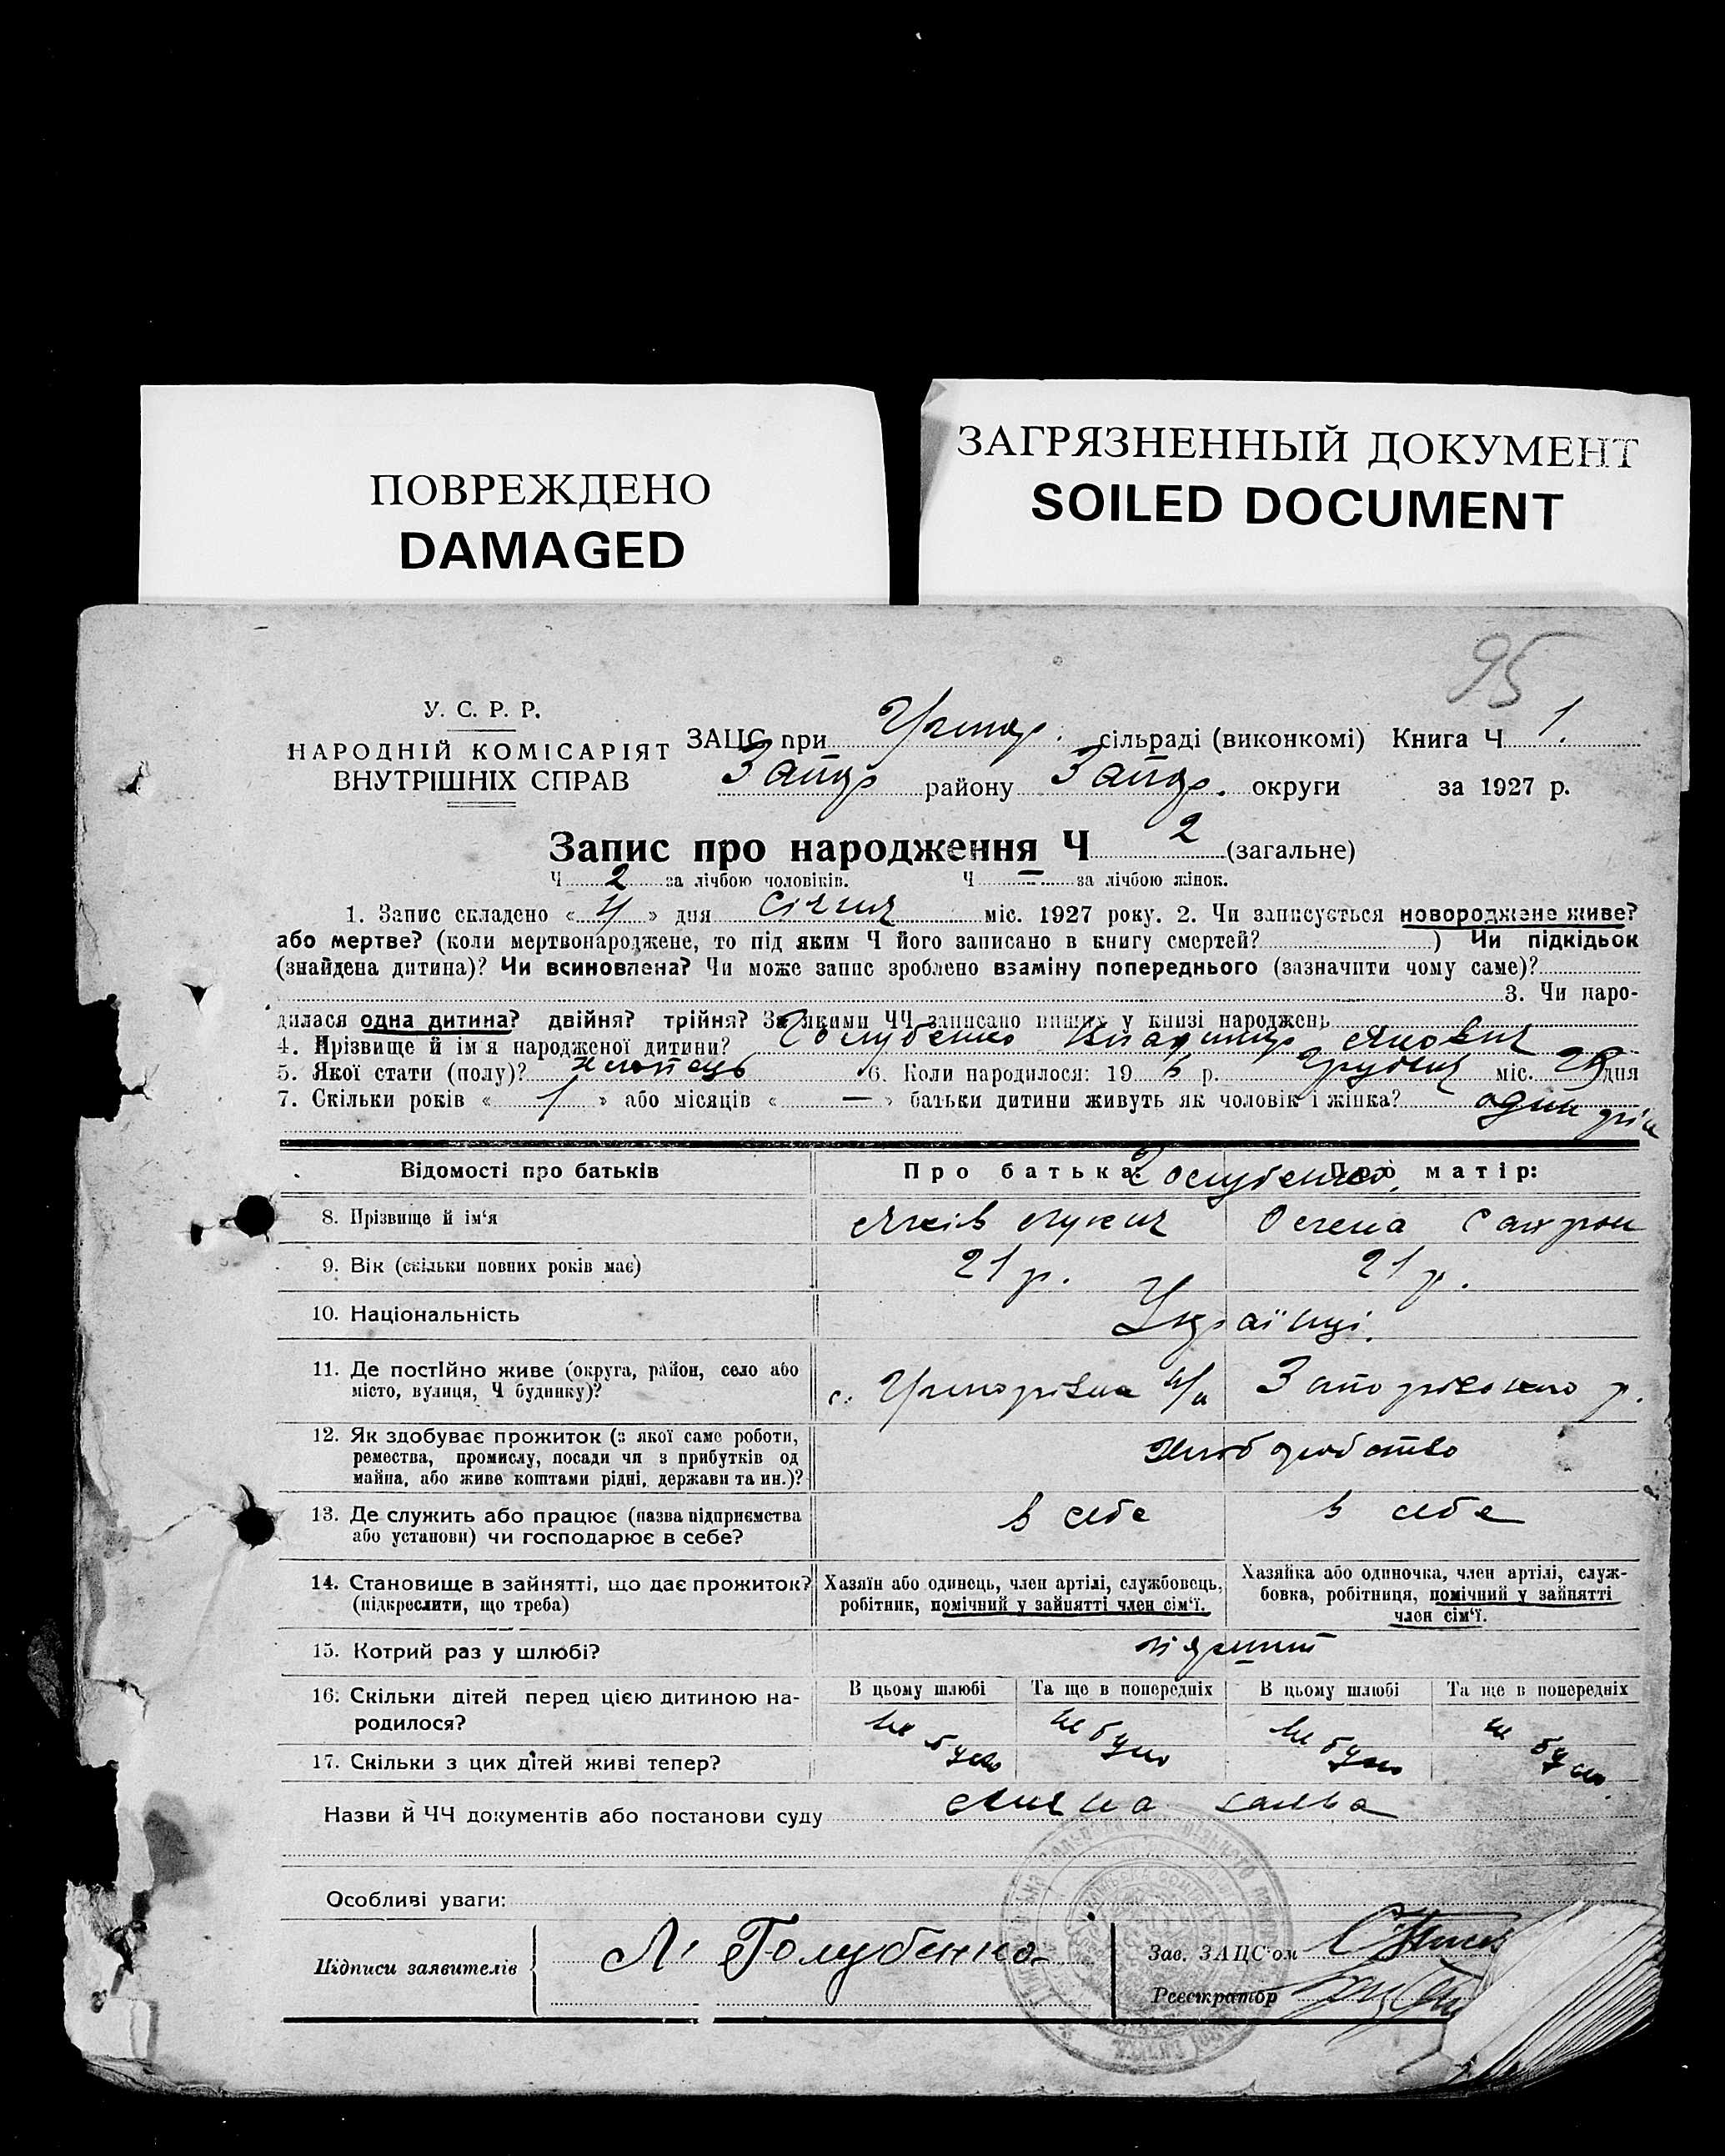 ПОВРЕЖДЕНО
DAMAGED
ЗАГРЯЗНЕННЫЙ ДОКУМЕНТ
SOILED DOCUMENT
95
У. С. Р. Р.
НАРОДНІЙ КОМІСАРІЯТ
ВНУТРІШНІХ СПРАВ
ЗАЦС при сільраді (виконкомі) Книга Ч 1.
району округи за 1927 р.
Запис про народження Ч 2 (загальне)
Ч 2 за лічбою чоловіків. Ч — за лічбою жінок.
1. Запис складено « 4 » дня Січня міс. 1927 року. 2. Чи записується новороджене живе?
або мертве? (коли мертвонароджене, то під яким Ч його записано в книгу смертей? ) Чи підкідьок
(знайдена дитина)? Чи всиновлена? Чи може запис зроблено взаміну попереднього (зазначити чому саме)?
3. Чи наро-
дилася одна дитина? двійня? трійня? За якими ЧЧ записано инших у книзі народжень
4. Прізвище й ім'я народженої дитини? Голубенко Владимир Якович
5. Якої стати (полу)? хлопець 6. Коли народилося: 19 6 р. Грудня міс. дня
7. Скільки років « 1 » або місяців « — » батьки дитини живуть як чоловік і жінка? один рік
Відомості про батьків Про батька: Про матір:
Голубенко
8. Прізвище й ім'я Яків Лукич Олена
9. Вік (скільки повних років має) 21 р. 21 р.
10. Національність Українці.
11. Де постійно живе (округа, район, село або
місто, вулиця, Ч будинку)? с. Григорівка Запорізького р.
12. Як здобуває прожиток (з якої саме роботи,
ремества, промислу, посади чи з прибутків од
майна, або живе коштами рідні, держави та ин.)? Хліборобство
13. Де служить або працює (назва підприємства
або установи) чи господарює в себе? в себе в себе
14. Становище в зайнятті, що дає прожиток?
(підкреслити, що треба)
Хазяїн або одинець, член артілі, службовець,
робітник, помічний у зайнятті член сім'ї.
Хазяйка або одиночка, член артілі, служ-
бовка, робітниця, помічний у зайнятті
член сім'ї.
15. Котрий раз у шлюбі? перший
16. Скільки дітей перед цією дитиною на-
родилося?
В цьому шлюбі Та ще в попередніх В цьому шлюбі Та ще в попередніх
не було не було не було не було
17. Скільки з цих дітей живі тепер?
Назви й ЧЧ документів або постанови суду Лична заява
Особливі уваги:
Підписи заявителів Л. Голубенко
Зав. ЗАЦС'ом
Реєстратор